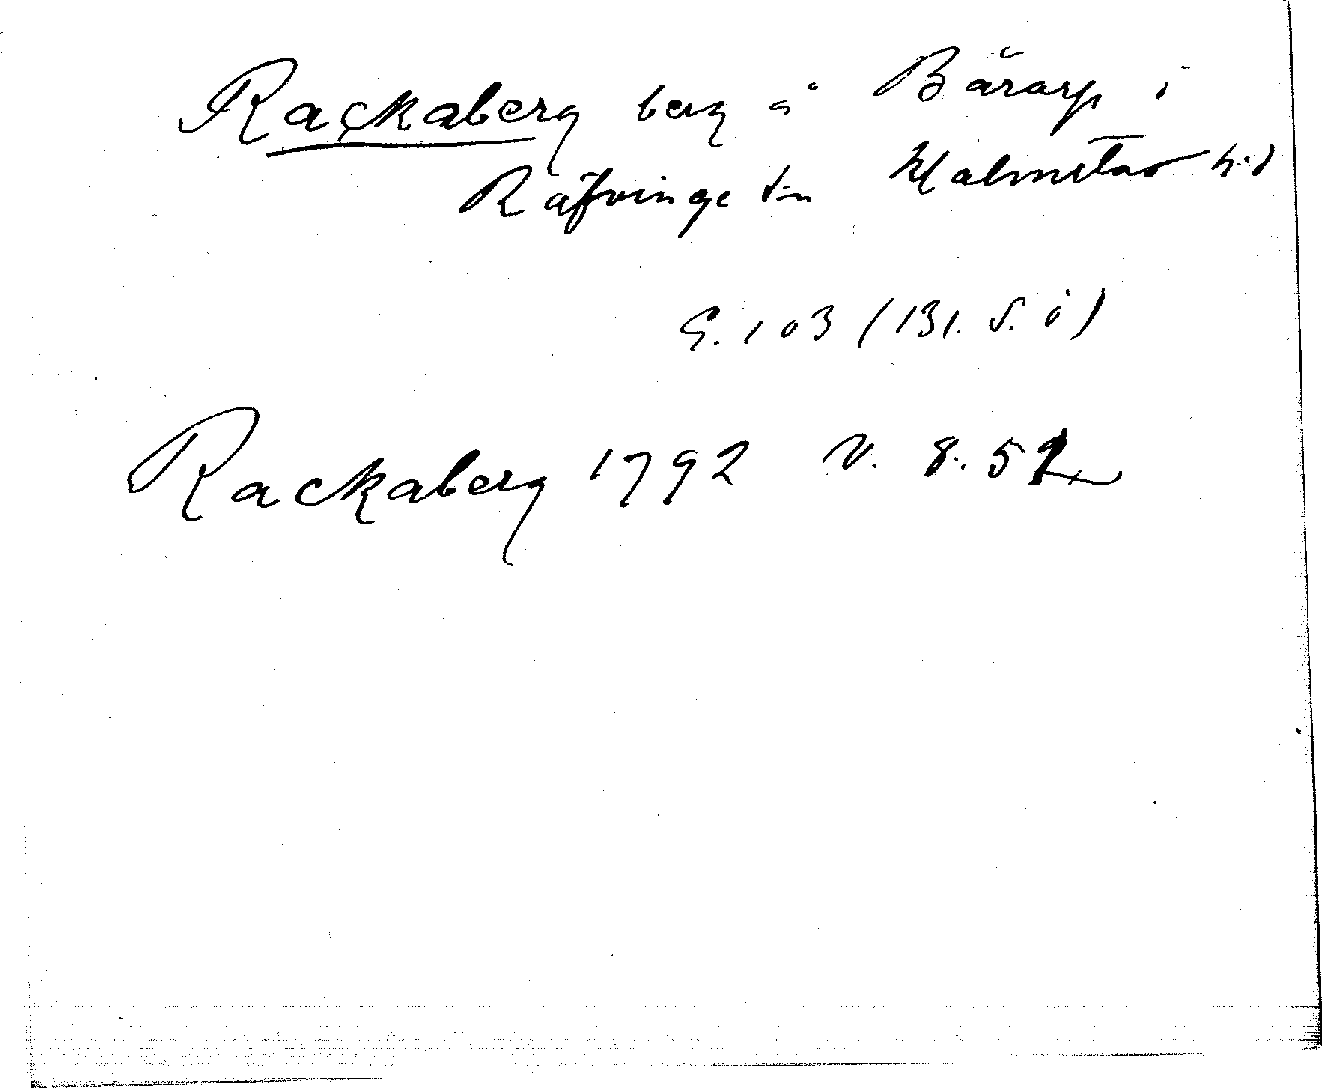 Rackaberg berg å Bärarp i
Räfvinge s-n Halmstad h-d
G. 103 (131. S. ö)
Rackaberg 1792 V. 8. 52